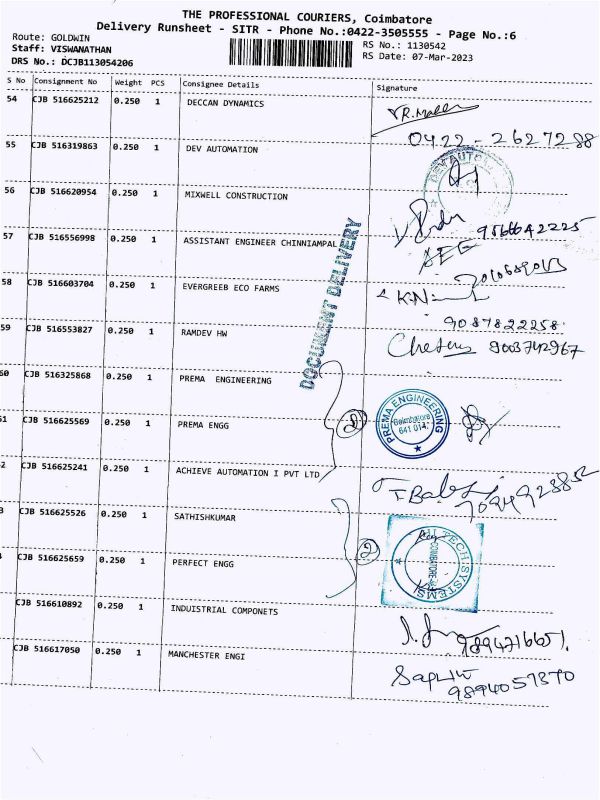 THE PROFESSIONAL COURIERS, Coimbatore
Delivery Runsheet - SITR - Phone No.:0422-3505555 - Page No.:6
Route: GOLDWIN
Staff: VISWANATHAN
DRS No.: DCJB113054206
RS No.: 1130542
RS Date: 07-Mar-2023
S No Consignment No Weight PCS Consignee Details Signature
54 CJB 516625212 0.250 1 DECCAN DYNAMICS
0422-2627288
55 CJB 516319863 0.250 1 DEV AUTOMATION
56 CJB 516620954 0.250 1 MIXWELL CONSTRUCTION
57 CJB 516556998 0.250 1 ASSISTANT ENGINEER CHINNIAMPAL
AEE
58 CJB 516603704 0.250 1 EVERGREEB ECO FARMS
9087822258
59 CJB 516553827 0.250 1 RAMDEV HW
9003742967
DOCUMENT DELIVERY
60 CJB 516325868 0.250 1 PREMA ENGINEERING
61 CJB 516625569 0.250 1 PREMA ENGG
2
PREMA ENGINEERING
Coimbatore
641 014.
2 CJB 516625241 0.250 1 ACHIEVE AUTOMATION I PVT LTD
3 CJB 516625526 0.250 1 SATHISHKUMAR
CJB 516625659 0.250 1 PERFECT ENGG
2
TECH SYSTEMS
COIMBATORE
CJB 516610892 0.250 1 INDUISTRIAL COMPONETS
9894716651.
CJB 516617050 0.250 1 MANCHESTER ENGI
9894057370